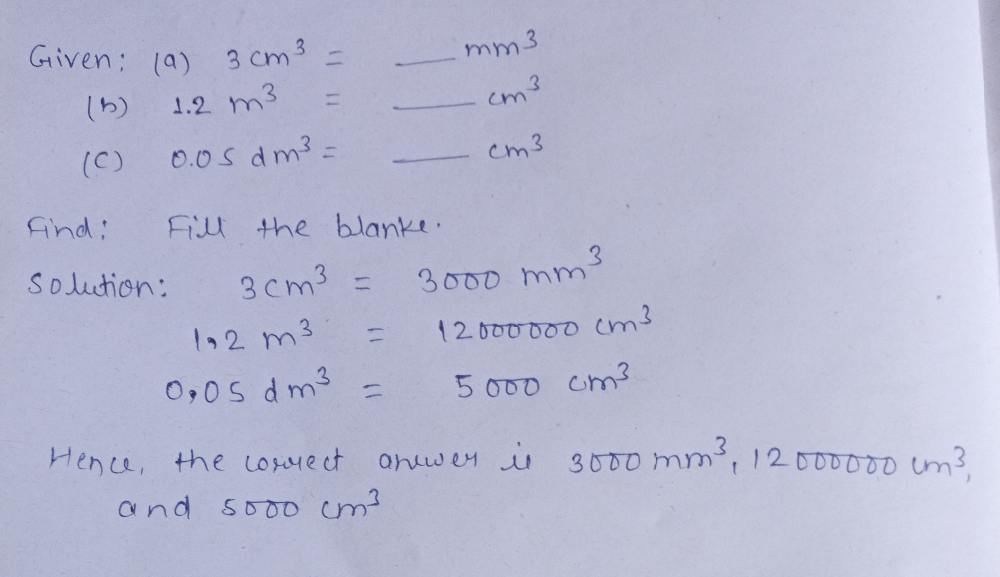 Given: (a) 3 cm³ = ___ mm³
(b) 1.2 m³ = ___ cm³
(c) 0.05 dm³ = ___ cm³
Find: Fill the blanke.
Solution: 3cm³ = 3000 mm³
1,2 m³ = 12000000 cm³
0,05 dm³ = 5000 cm³
Hence, the correct answer is 3000 mm³, 12000000 cm³,
and 5000 cm³